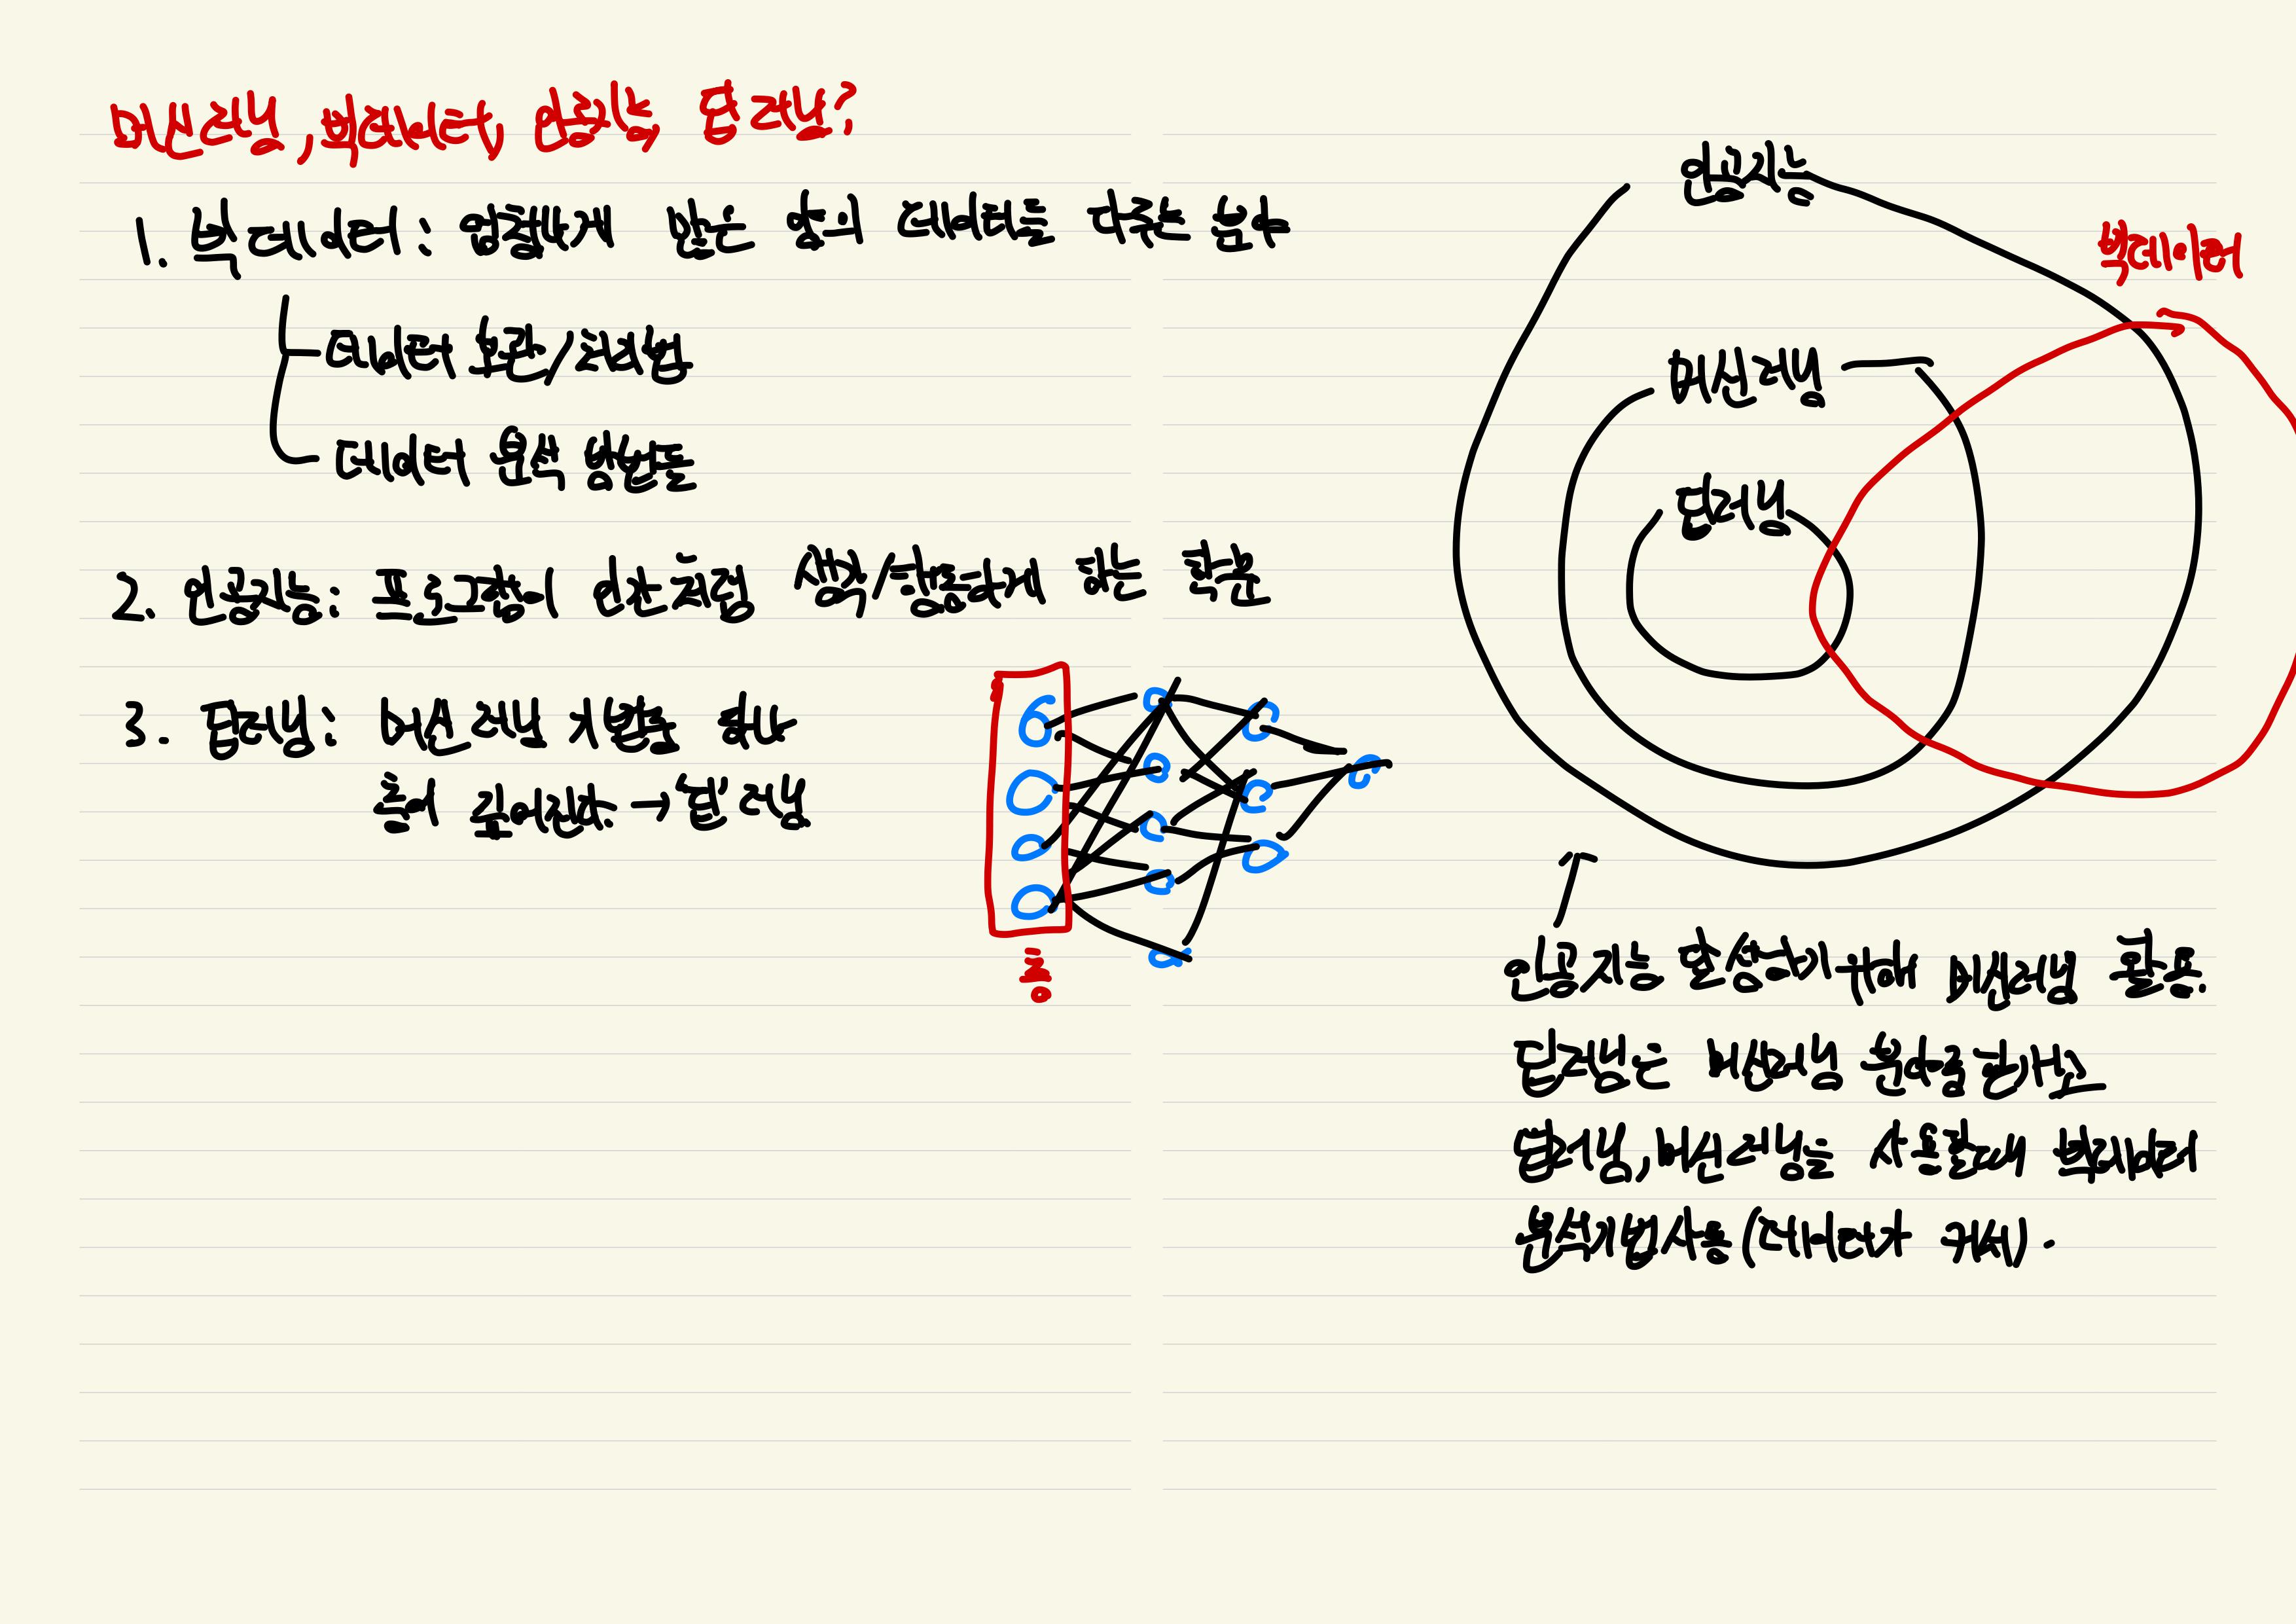 머신러닝, 빅데이터, 인공지능, 딥러닝?
1. 빅데이터: 엄청나게 많은 양의 데이터를 다루는 분야
데이터 보관/처리법
데이터 분석 방법들
2. 인공지능: 프로그램이 인간처럼 생각/행동하게 하는 학문
3. 딥러닝: 머신러닝 기법중 하나
층이 깊어진다 → "딥"러닝
층
인공지능
빅데이터
머신러닝
딥러닝
인공지능 달성하기 위해 머신러닝 활용.
딥러닝은 머신러닝 분야중 한가지
딥러닝, 머신러닝을 사용할때 빅데이터
분석기법사용 (데이터가 커서).